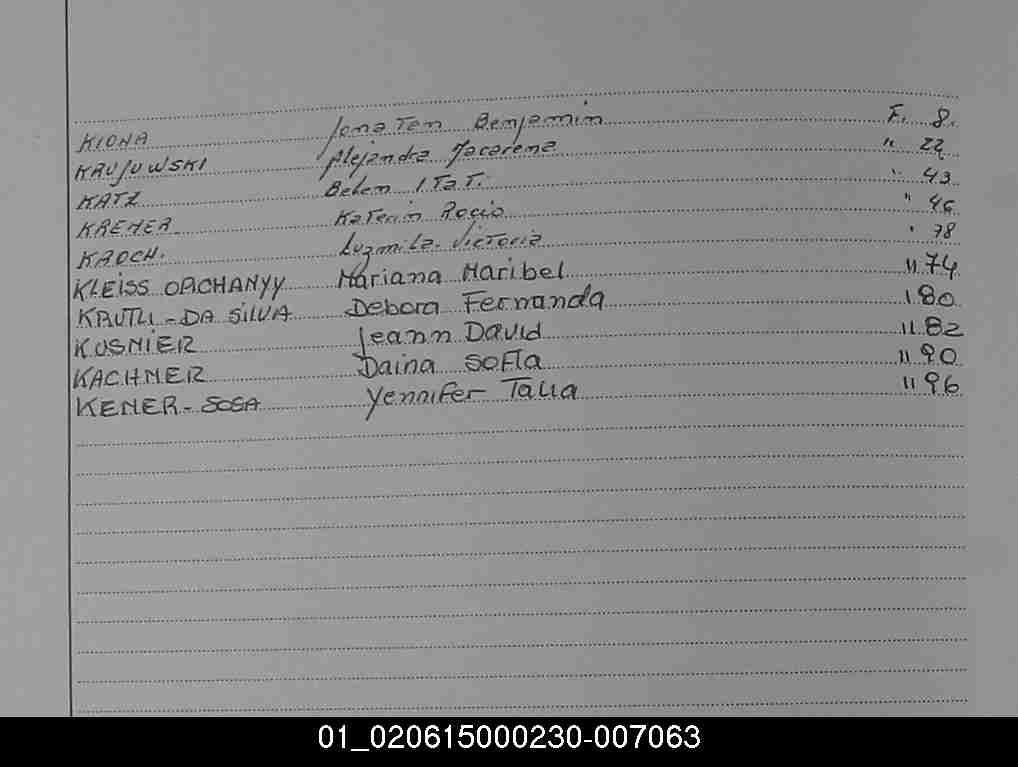 KIONA Jonaten Benjamin F. 8.
KRUJUWSKI Alejandra Macarena " 22
KATZ Belen ITaT. " 43
KREMER Katerin Rocio " 46
KROCH. Luzmila Victoria " 78
KLEISS OPICHANYY Mariana Maribel " 74
KRUTLI - DA SILVA Debora Fernanda 180
KUSNIER Jeann David " 82
KACHMER Daina SOFIa " 90
KENER - SOSA Yennifer Talia " 96
01_020615000230-007063